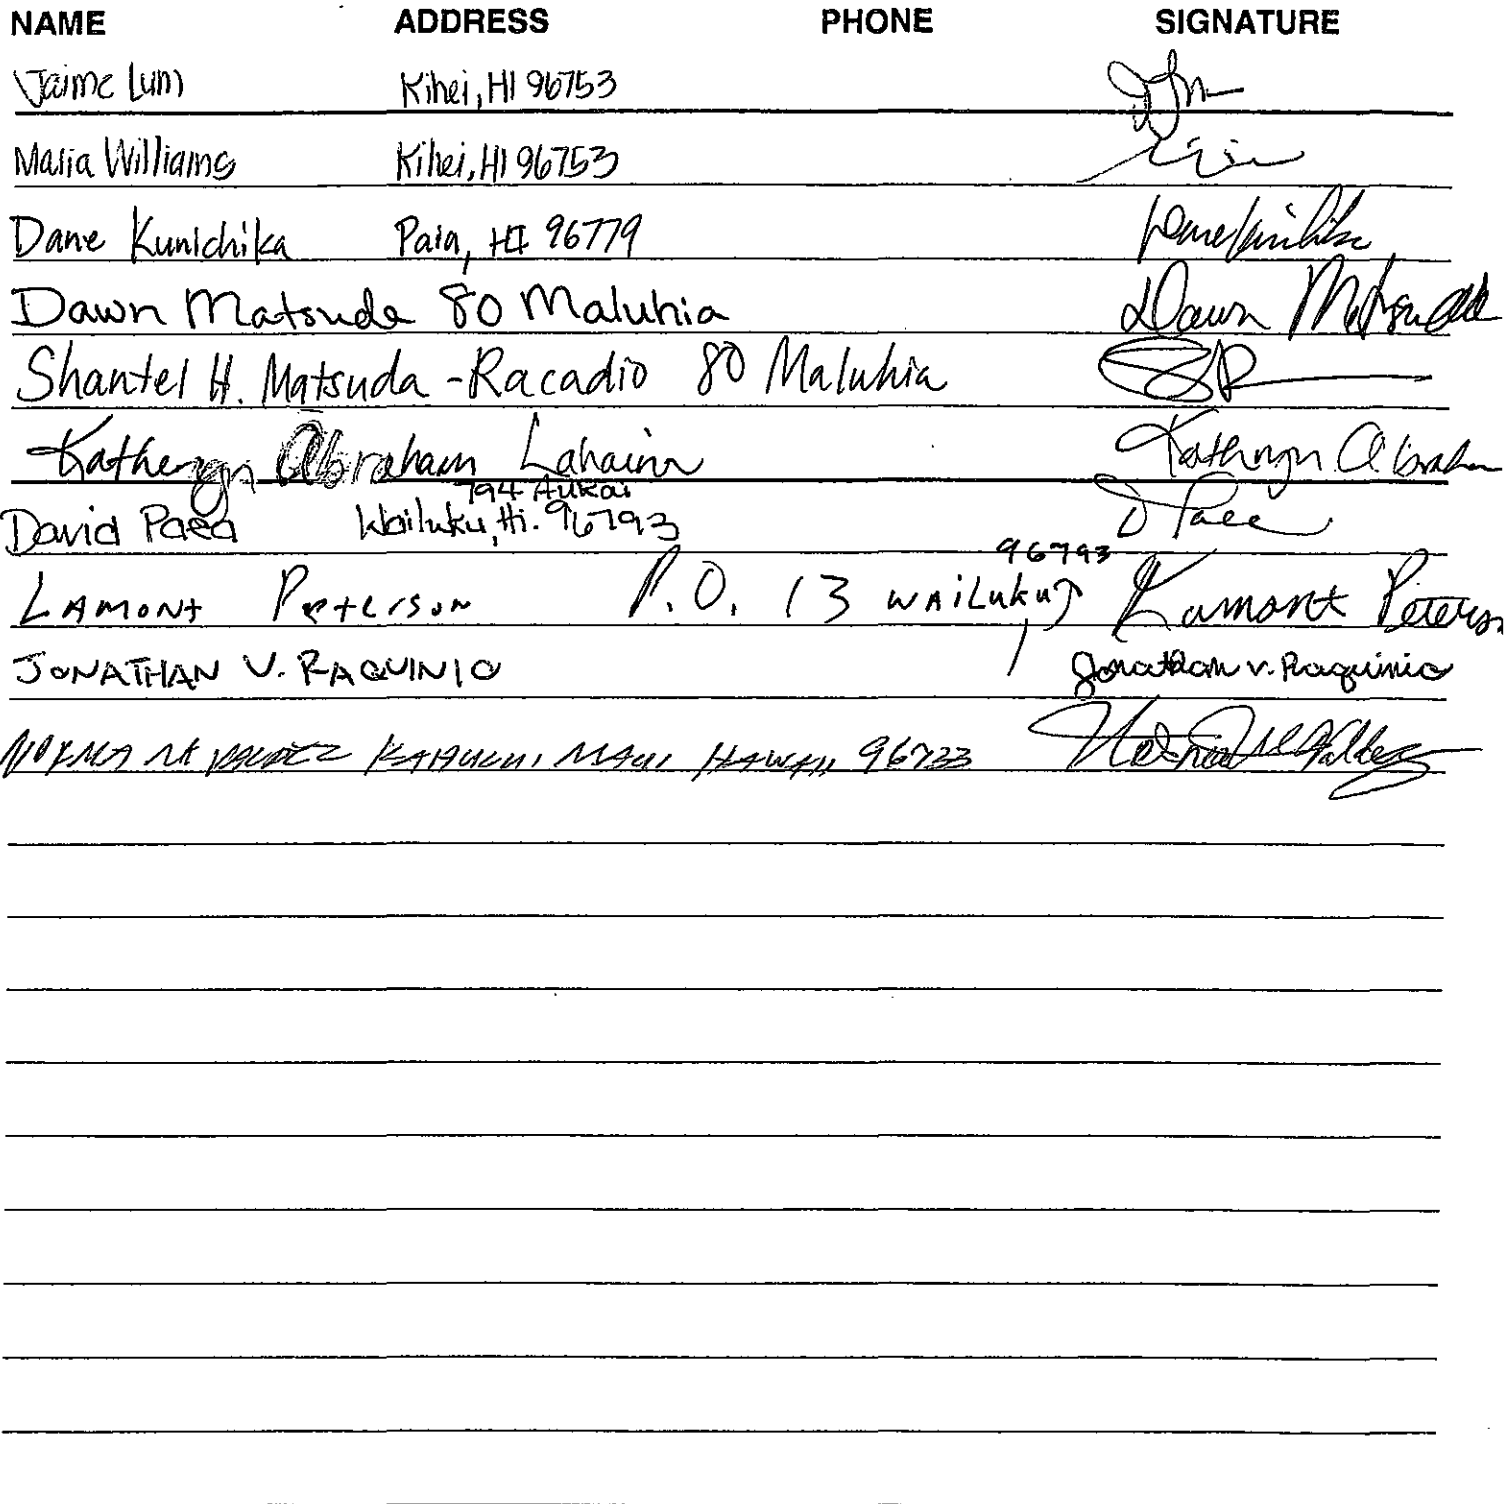 NAME ADDRESS PHONE SIGNATURE
Jaime Lum Kihei, HI 96753
Malia Williams Kihei, HI 96753
Dane Kunichika Paia, HI 96779 Dane Kunichika
Dawn Matsuda 80 Maluhia Dawn Matsuda
Shantel H. Matsuda-Racadio 80 Maluhia
Katheryn Abraham Lahaina Katheryn Abraham
794 Aukai
David Paea Wailuku, Hi. 96793 D Paea
96793
LAMONT Peterson P.O. 13 WAILUKU, Lamont Peterson
JONATHAN V. RAQUINIO Jonathan V. Raquinio
NORMA M VALDEZ KAHULUI, MAUI HAWAII 96733 Norma M Valdez